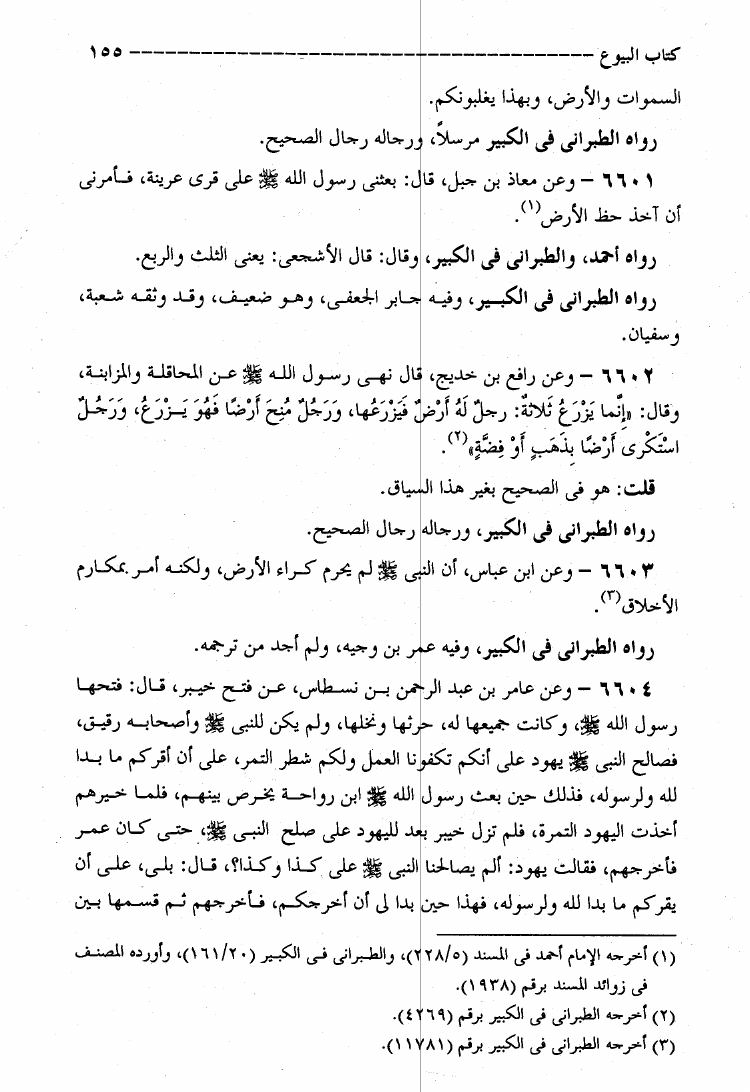 كتاب البيوع ----------------------------------------- ١٥٥
السموات والأرض، وبهذا يغلبونكم.
رواه الطبرانى فى الكبير مرسلاً، ورجاله رجال الصحيح.
٦٦٠١ – وعن معاذ بن جبل، قال: بعثنى رسول الله ﷺ على قرى عرينة، فأمرنى
أن آخذ حظ الأرض(١).
رواه أحمد، والطبرانى فى الكبير، وقال: قال الأشجعى: يعنى الثلث والربع.
رواه الطبرانى فى الكبير، وفيه جابر الجعفى، وهو ضعيف، وقد وثقه شعبة،
وسفيان.
٦٦٠٢ – وعن رافع بن خديج، قال نهى رسول الله ﷺ عن المحاقلة والمزابنة،
وقال: «إِنَّما يَزْرَعُ ثَلاثةٌ: رجلٌ لَهُ أَرْضٌ فَيَزْرَعُها، ورَجُلٌ مُنِحَ أَرْضًا فَهُوَ يَزْرَعُ، ورَجُلٌ
اسْتَكْرى أَرْضًا بِذَهَبٍ أَوْ فِضَّةٍ»(٢).
قلت: هو فى الصحيح بغير هذا السياق.
رواه الطبرانى فى الكبير، ورجاله رجال الصحيح.
٦٦٠٣ – وعن ابن عباس، أن النبى ﷺ لم يحرم كراء الأرض، ولكنه أمر بمكارم
الأخلاق(٣).
رواه الطبرانى فى الكبير، وفيه عمر بن وجيه، ولم أجد من ترجمه.
٦٦٠٤ – وعن عامر بن عبد الرحمن بن نسطاس، عن فتح خيبر، قال: فتحها
رسول الله ﷺ، وكانت جميعها له، حرثها ونخلها، ولم يكن للنبى ﷺ وأصحابه رقيق،
فصالح النبى ﷺ يهود على أنكم تكفونا العمل ولكم شطر التمر، على أن أقركم ما بدا
لله ولرسوله، فذلك حين بعث رسول الله ﷺ ابن رواحة يخرص بينهم، فلما خيرهم
أخذت اليهود التمرة، فلم تزل خيبر بعد لليهود على صلح النبى ﷺ، حتى كان عمر
فأخرجهم، فقالت يهود: ألم يصالحنا النبى ﷺ على كذا وكذا؟، قال: بلى، على أن
يقركم ما بدا لله ولرسوله، فهذا حين بدا لى أن أخرجكم، فأخرجهم ثم قسمها بين
(١) أخرجه الإمام أحمد فى المسند (٢٢٨/٥)، والطبرانى فى الكبير (١٦١/٢٠)، وأورده المصنف
فى زوائد المسند برقم (١٩٣٨).
(٢) أخرجه الطبرانى فى الكبير برقم (٤٢٦٩).
(٣) أخرجه الطبرانى فى الكبير برقم (١١٧٨١).